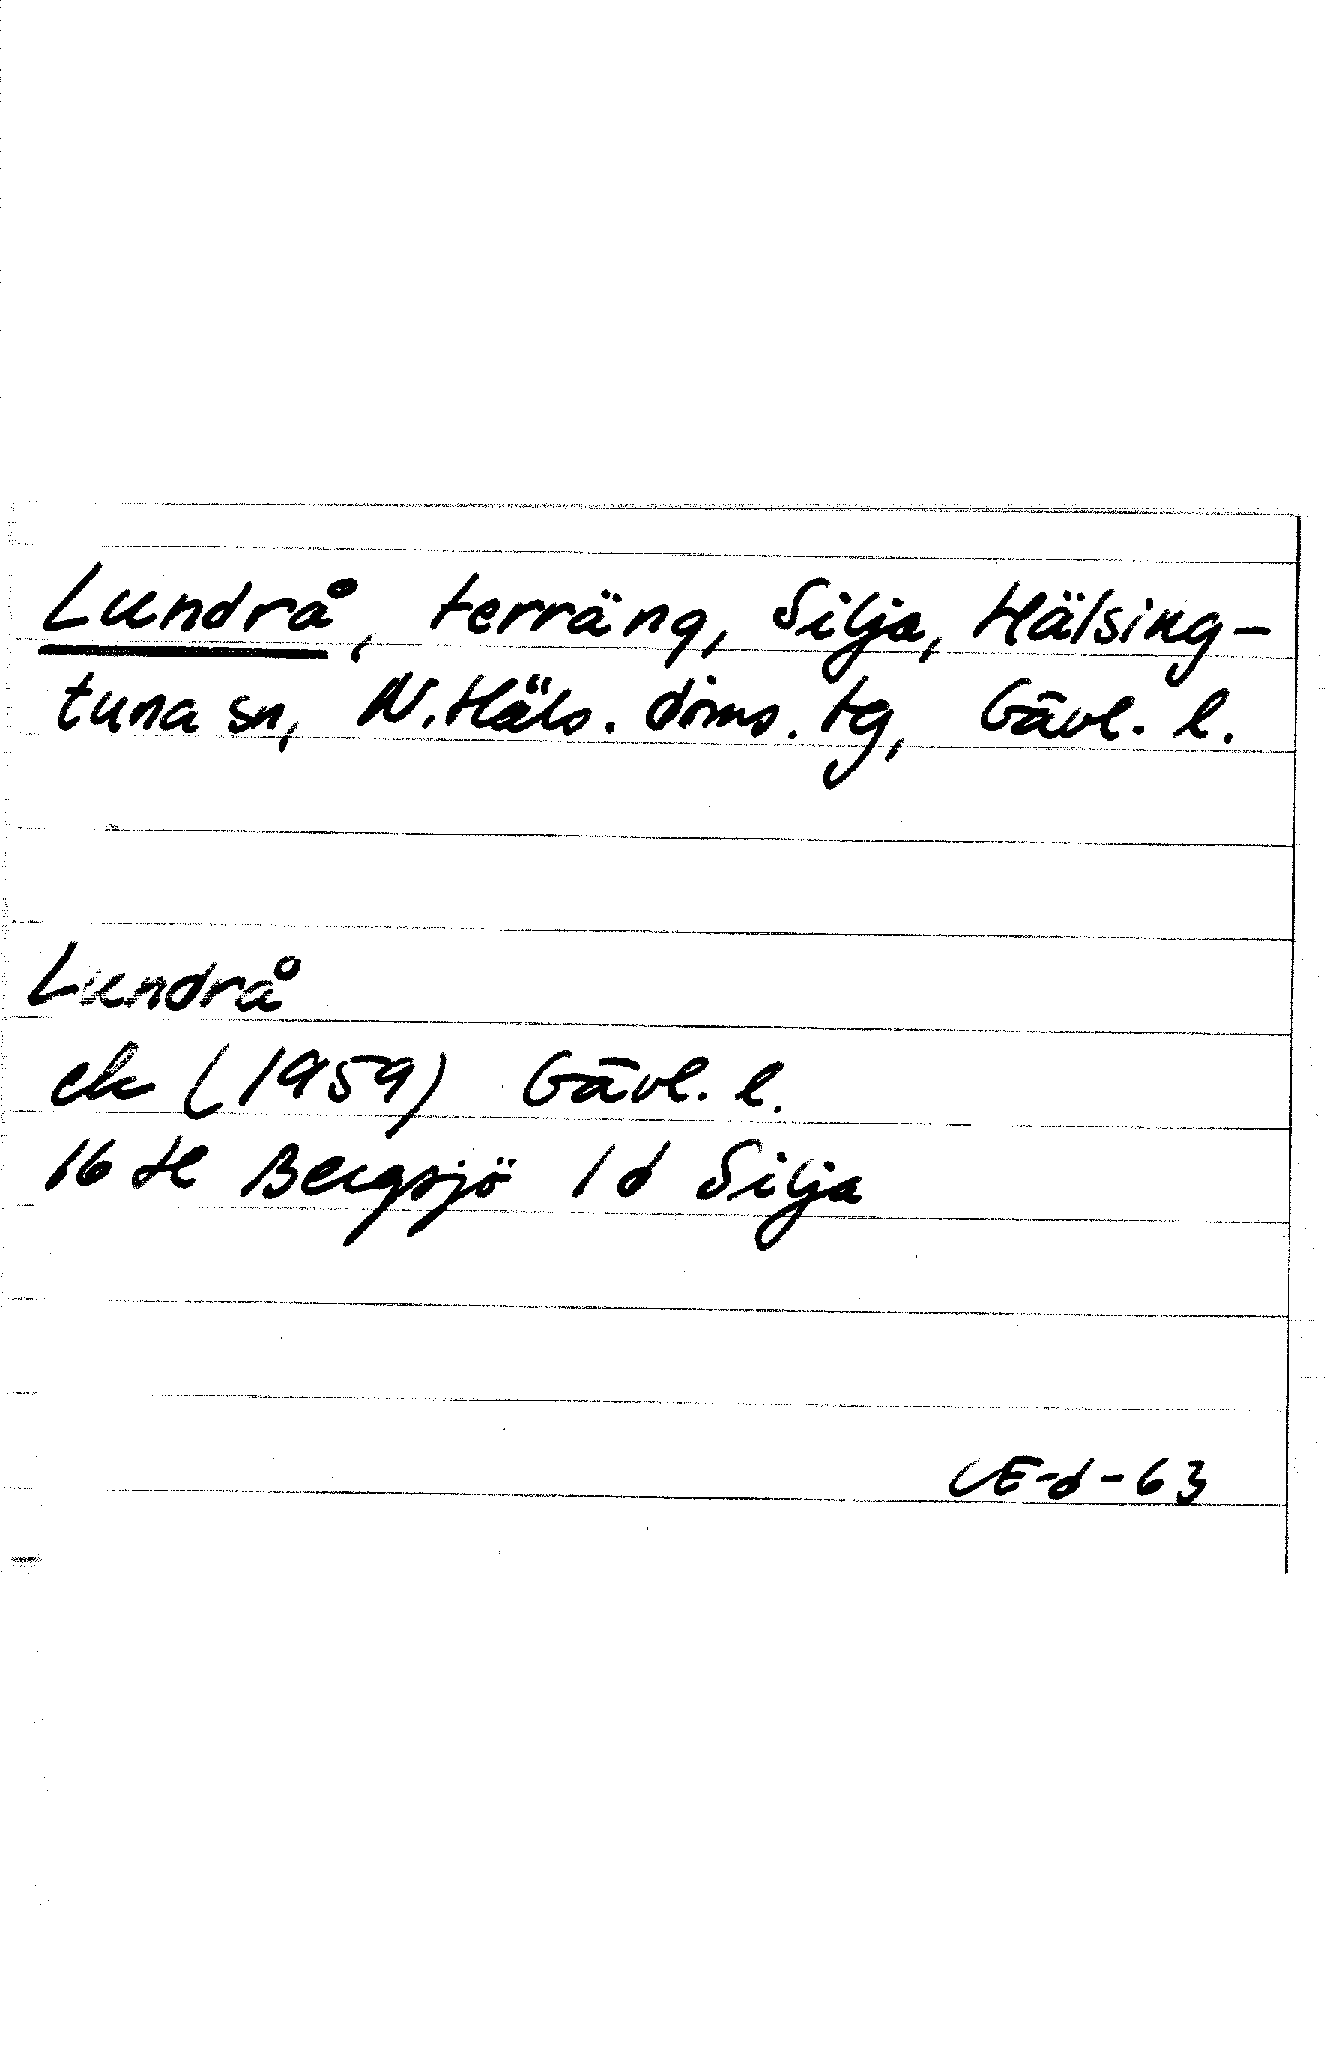 Lundrå, terräng, Silja, Hälsing-
tuna sn, N. Häls. doms. tg, Gävl. l.
Lundrå
ek (1959) Gävl. l.
16 H Bergsjö 1 d Silja
CE-d-63